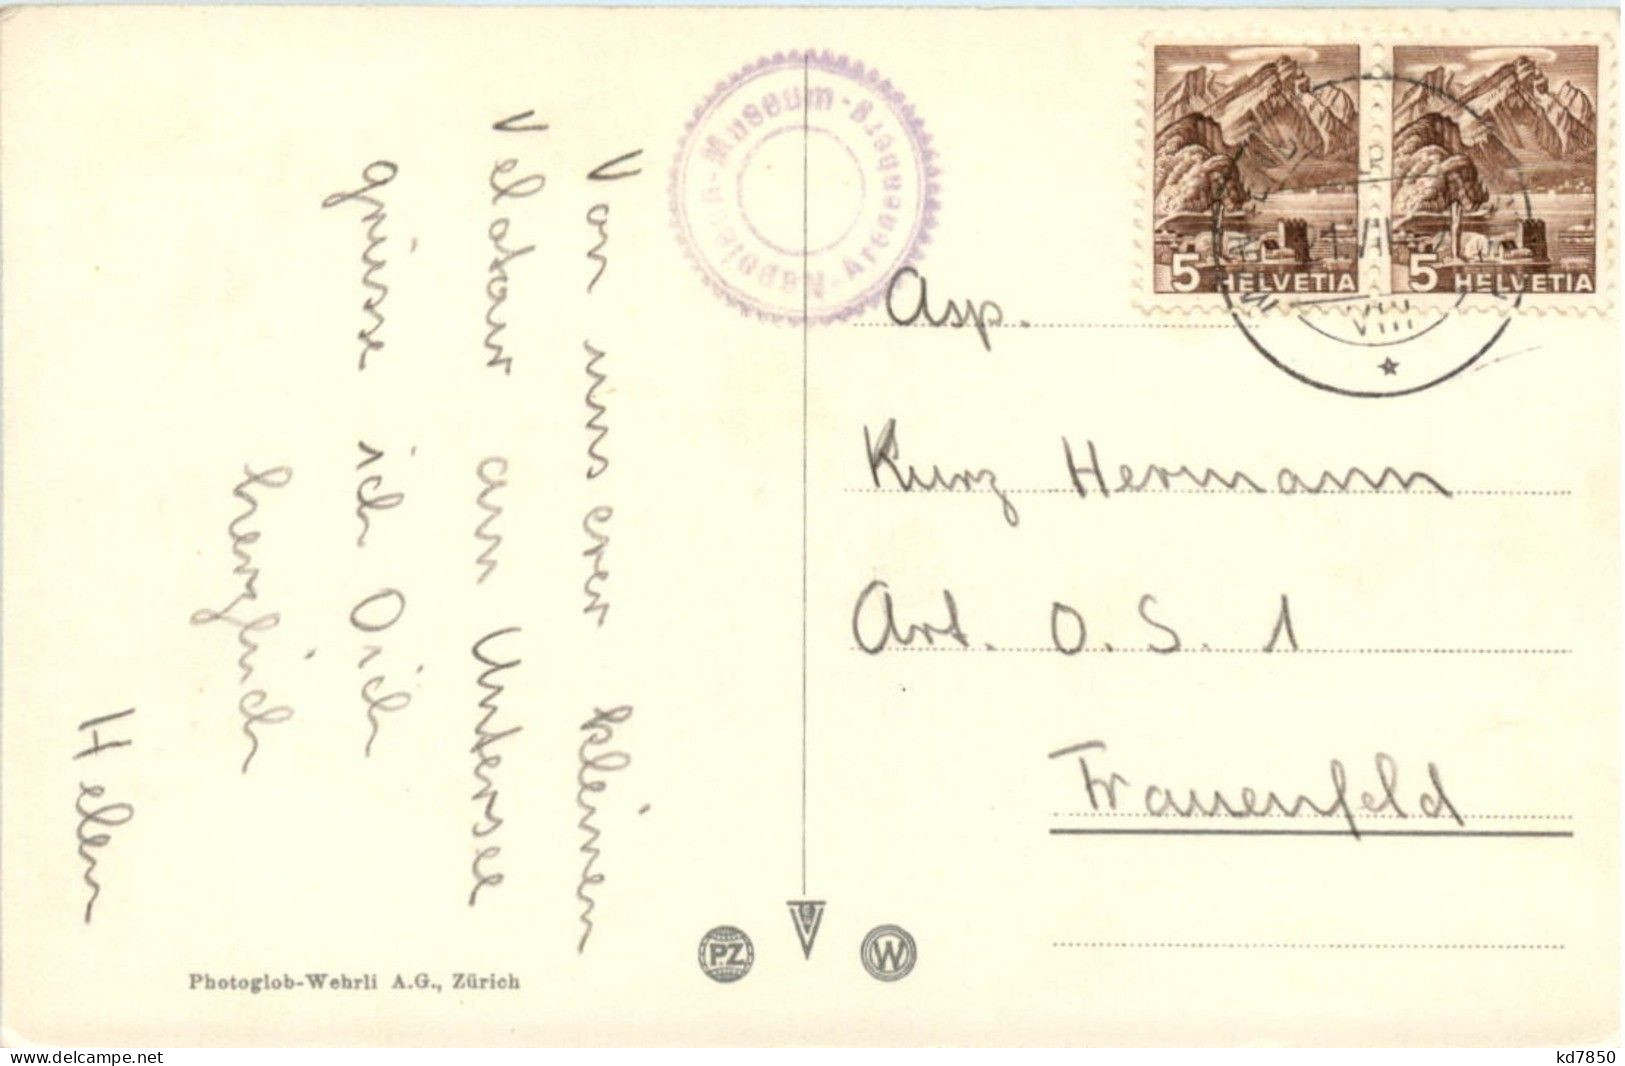 Von unserer kleinen
Velotour am Untersee
grüsse ich Dich
herzlich
Helen
Napoleon-Museum-Arenenberg-
5 HELVETIA
5 HELVETIA
VIII
Asp.
Kurz Hermann
Art. O. S. 1
Frauenfeld
PZ
W
Photoglob-Wehrli A.G., Zürich
www.delcampe.net
kd7850